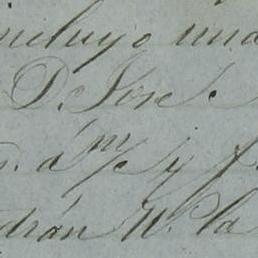 incluyo una
D. José
s. a m/c y f
drán N. la